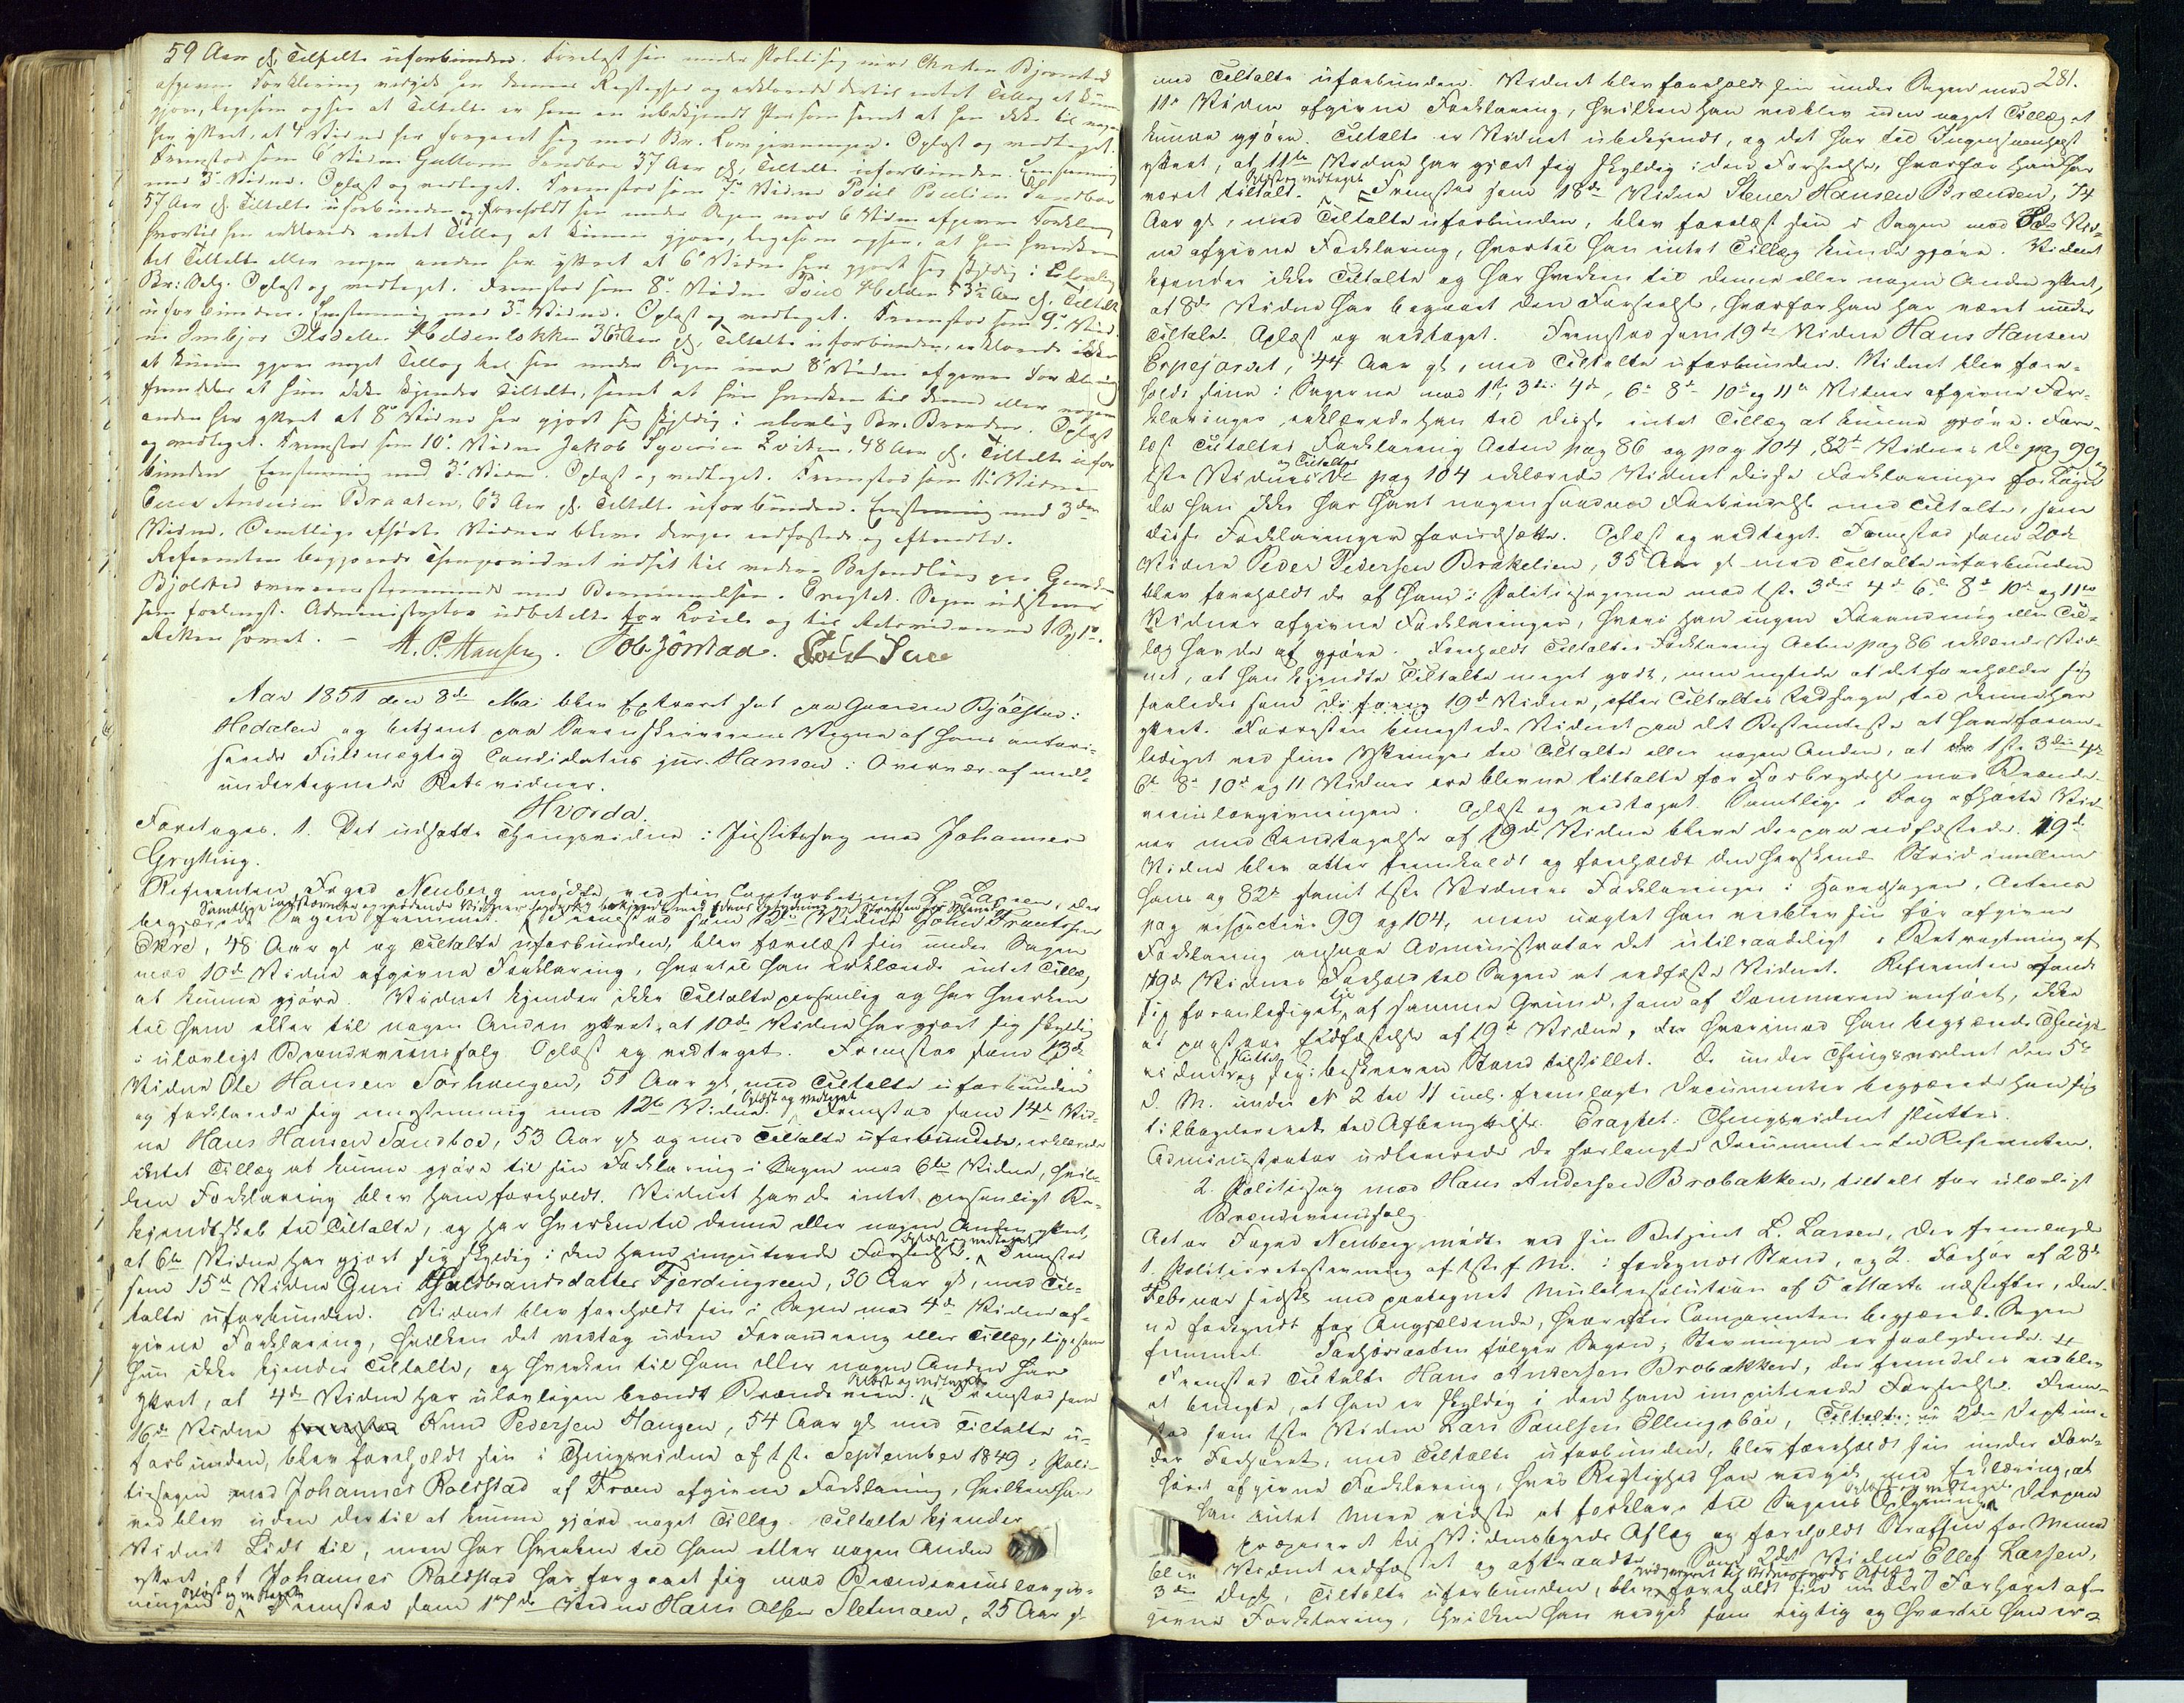 59 Aar gl. Tiltalte uforbunden. Forelæst sin under Politisag mod Christen Bjørnstad
afgivne Forklaring vedgik han dennes Rigtighed og erklærede dertil intet Tillæg at kunne
gjøre, ligesom ogsaa at Tiltalte er ham en ubekjendt Person samt at han ikke til nogen
har yttret, at 4 Vidne har forgaaet sig mod Br. Lovgivningen. Oplæst og vedtaget.
Fremstod som 6te Vidne Guttorm Sandboe 37 Aar gl., Tiltalte uforbunden. Eenstemmig
med 3de Vidne. Oplæst og vedtaget. Fremstod som 7de Vidne Poul Poulsen Sandboe
57 Aar gl. Tiltalte uforbunden og foreholdt sin under Sagen mod 6 Vidne afgivne Forklaring
hvortil han erklærede intet Tillæg at kunne gjøre, ligesom ogsaa, at han hverken
til Tiltalte eller nogen anden har yttret at 6te Vidne har gjort sig skyldig i ulovlig
Br: Salg. Oplæst og vedtaget. Fremstod som 8de Vidne Poul Heldens 53 Aar gl. Tiltalte
uforbunden. Eenstemmig med 3de Vidne. Oplæst og vedtaget. Fremstod som 9de Vid-
ne Imbjør Olsdatter Heldenløkken 36 Aar gl., Tiltalte uforbunden, erklærede ikke
at kunne gjøre noget Tillæg til sin under Sagen mod 8de Vidne afgivne Forklaring
fremdeles at hun ikke kjender Tiltalte, samt at hun hverken til denne eller nogen
anden har yttret at 8de Vidne har gjort sig skyldig i ulovlig Br. Brænden. Oplæst
og vedtaget. Fremstod som 10de Vidne Jakob Syversen Qviten, 48 Aar gl., Tiltalte ufor-
bunden. Eenstemmig med 3de Vidne. Oplæst og vedtaget. Fremstod som 11te Vidne
Anderson Braaten, 63 Aar gl. Tiltalte uforbunden. Eenstemmig med 3die
Vidne. Samtlige afhørte Vidner bleve derpaa edfæstede og aftraadte.
Referenten begjærede Thingsvidnet udsat til videre Behandling paa Gaarden
Bjølstad overeensstemmende med Berammelsen. Eragtet. Sagen udstaaer
som forlangt. Administrator udbetalte for Locale og til Retsvidnerne 1 Spd
Retten hævet. – A. P. Hansen. Ole Jørstad. Poul

Aar 1851 den 8de Mai blev Extraret sat paa Gaarden Bjølstad i
Hedalen og betjent paa Sorenskriverens Vegne af hans autori-
serede Fuldmægtig Candidatus jur. Hansen i Overvær af med-
undertegnede Retsvidner.
Hvorda.
Foretages. 1. Det udsatte Thingsvidne i Justitssag mod Johannes
Grytting.
Referenten Foged Neuberg mødte ved sin Contorbetjent L. Larsen, der
Samtlige indstævnte og mødende Vidner foreholdt Edens Betydning og Straffen for Meened
begjærede Sagen fremmet. Fremstod som 12te Vidne John Frantsen
Ekre, 48 Aar gl og Tiltalte uforbunden, blev forelæst sin under Sagen
mod 10de Vidne afgivne Forklaring, hvortil han erklærede intet Tillæg
at kunne gjøre. Vidnet kjender ikke Tiltalte personlig og har hverken
til ham eller til nogen Anden yttret, at 10de Vidne har gjort sig skyldig
i ulovligt Brændeviinssalg. Oplæst og vedtaget. Fremstod som 13de
Vidne Ole Hansen Sørhaugen, 51 Aar gl, med Tiltalte uforbunden
og forklarede sig eenstemmig med 12te Vidne. Oplæst og vedtaget Fremstod som 14de Vid-
ne Hans Hansen Sandboe, 53 Aar gl og med Tiltalte uforbunden, erklærede
intet Tillæg at kunne gjøre til sin Forklaring i Sagen mod 6te Vidne, hvil-
ken Forklaring blev ham foreholdt. Vidnet havde intet personligt Be-
kjendtskab til Tiltalte, og har hverken til denne eller nogen Anden yttret,
at 6te Vidne har gjort sig skyldig i den ham imputerede Forseelse. Oplæst og vedtaget Fremstod
som 15de Vidne Guri Guldbrandsdatter Fjerdingreen, 30 Aar gl, med Til-
talte uforbunden. Vidnet blev foreholdt sin i Sagen mod 4de Vidne af-
givne Forklaring, hvilken det vedtog uden Forandring eller Tillæg, ligesom
hun ikke kjender Tiltalte, og hverken til ham eller nogen Anden har
yttret, at 4de Vidne har ulovligen brændt Brændeviin. Oplæst og vedtaget Fremstod som
16de Vidne Knud Pedersen Haugen, 54 Aar gl med Tiltalte u-
forbunden, blev foreholdt sin i Thingsvidne af 1ste September 1849 i Poli-
tisagen mod Johannes Rolsstad af Froen afgivne Forklaring, hvilken han
vedblev uden dertil at kunne gjøre noget Tillæg. Tiltalte kjender
Vidnet Lidt til, men har hverken til ham eller nogen Anden
yttret, at Johannes Rolsstad har forgaaet sig mod Brændeviinslovgiv-
ningen. Oplæst og vedtaget Fremstod som 17de Vidne Hans Olsen Sletmoen, 25 Aar gl

281.
med Tiltalte uforbunden. Vidnet blev foreholdt sin under Sagen mod
11te Vidne afgivne Forklaring, hvilken han vedblev uden noget Tillæg at
kunne gjøre. Tiltalte er Vidnet ubekjendt, og det har til Ingensomhelst
yttret, at 11te Vidne har gjort sig skyldig i den Forseelse, hvorfor han har
været tiltalt. Oplæst og vedtaget Fremstod som 18de Vidne Stener Hansen Brænden, 74
Aar gl, med Tiltalte uforbunden, blev forelæst sin i Sagen mod 8de Vid-
ne afgivne Forklaring, hvortil han intet Tillæg kunde gjøre. Vidnet
kjender ikke Tiltalte og har hverken til denne eller nogen Anden yttret,
at 8de Vidne har begaaet den Forseelse, hvorfor han har været under
Tiltale. Oplæst og vedtaget. Fremstod som 19de Vidne Hans Hansen
Espejordet, 44 Aar gl, med Tiltalte uforbunden. Vidnet blev fore-
holdt sine i Sagerne mod 1ste, 3die 4de, 6te 8de 10de og 11te Vidner afgivne For-
klaringer erklærede han til disse intet Tillæg at kunne gjøre. Fore-
læst Tiltaltes Forklaring Acten pag 86 og pag 104, 82de Vidnes do pag 99 og
1ste Vidnes og Tiltaltes do pag 104 erklærede Vidnet disse Forklaringer for Løgn
da han ikke har havt nogen saadan Forbindelse med Tiltalte, som
disse Forklaringer forudsætte. Oplæst og vedtaget. Fremstod som 20de
Vidne Peder Pedersen Brækelien, 35 Aar gl med Tiltalte uforbunden
blev foreholdt de af ham i Politisagerne mod 1ste 3die 4de 6te 8de 10de og 11te
Vidner afgivne Forklaringer, hvori han ingen Forandring eller Til-
læg havde at gjøre. Foreholdt Tiltaltes Forklaring Acten pag 86 erklærede Vid-
net, at han kjendte Tiltalte meget godt, men negtede at det forholder sig
saaledes som 19de Vidne, efter Tiltaltes Udsagn, til denne har
yttret. Forresten benegtede Vidnet paa det Bestemteste at have foran-
lediget ved sine Yttringer til Tiltalte eller nogen Anden, at 1ste 3die 4de
6te 8de 10de og 11 Vidner ere blevne tiltalte for Forbrydelse mod Brænde-
viinslovgivningen. Oplæst og vedtaget. Samtlige i Dag afhørte Vid-
ner med Undtagelse af 19de Vidne bleve derpaa edfæstede. 19de
Vidne blev atter fremkaldt og foreholdt den herskende Strid imellem
hans og 82de samt 1ste Vidnes Forklaringer i Hovedsagen, Actens
pag respective 99 og 104, men uagtet han vedblev sin før afgivne
Forklaring ansaae Administrator det utilraadeligt i Betragtning af
19de Vidnes Forhold til Sagen at edfæste Vidnet. Referenten fandt
sig foranlediget, af samme Grund, som af Dommeren anført, ikke
at paastaae Edfæstelse af 19de Vidne, der hvorimod han begjærede Things-
vidnet sluttet og sig i beskreven Stand tilstillet. De under Thingsvidnet den 5te
d. M. under No 2 til 11 incl. fremlagte Documenter begjærede han sig
tilbageleverede til Afbenyttelse. Eragtet: Thingsvidnet sluttes.
Administrator udleverede de forlangte Documenter til Referenten.
2. Politisag mod Hans Andersen Brobakken, tiltalt for ulovligt
Brændeviinssalg.
Actor Foged Neuberg mødte ved sin Betjent L. Larsen, der fremlagde
1. Politiretsstevning af 1ste f. M. i forkyndt Stand, og 2. Forhør af 28de
Februar sidstl. med paategnet Mulctresolution af 5 Marts næstefter, den-
ne forkyndt for Angjældende, hvorefter Comparenten begjærede Sagen
fremmet. Forhørsacten følger Sagen; Stevningen er saalydende:
Fremstod Tiltalte Hans Andersen Brobakken, der fremdeles vedblev
at benegte, at han er skyldig i den ham imputerede Forseelse. Frem-
stod som 1ste Vidne Lars Paulsen Ellingsbøe, 2den Dept un-
der Forhøret, med Tiltalte uforbunden, blev foreholdt sin under For-
høret afgivne Forklaring, hvis Rigtighed han vedgik med Erklæring, at
han intet mere vidste at forklare til Sagens Oplysning. Oplæst og vedtaget Derpaa
præpareret til Vidnesbyrds Aflæg og foreholdt Straffen for Meened
blev Vidnet edfæstet og aftraadte. Som 2det Vidne Ellef Larsen,
3die Dept, Tiltalte uforbunden, blev præpareret til Vidnesbyrds Aflæg foreholdt sin under Forhøret af-
givne Forklaring, hvilken han vedgik som rigtig og hvortil han er-